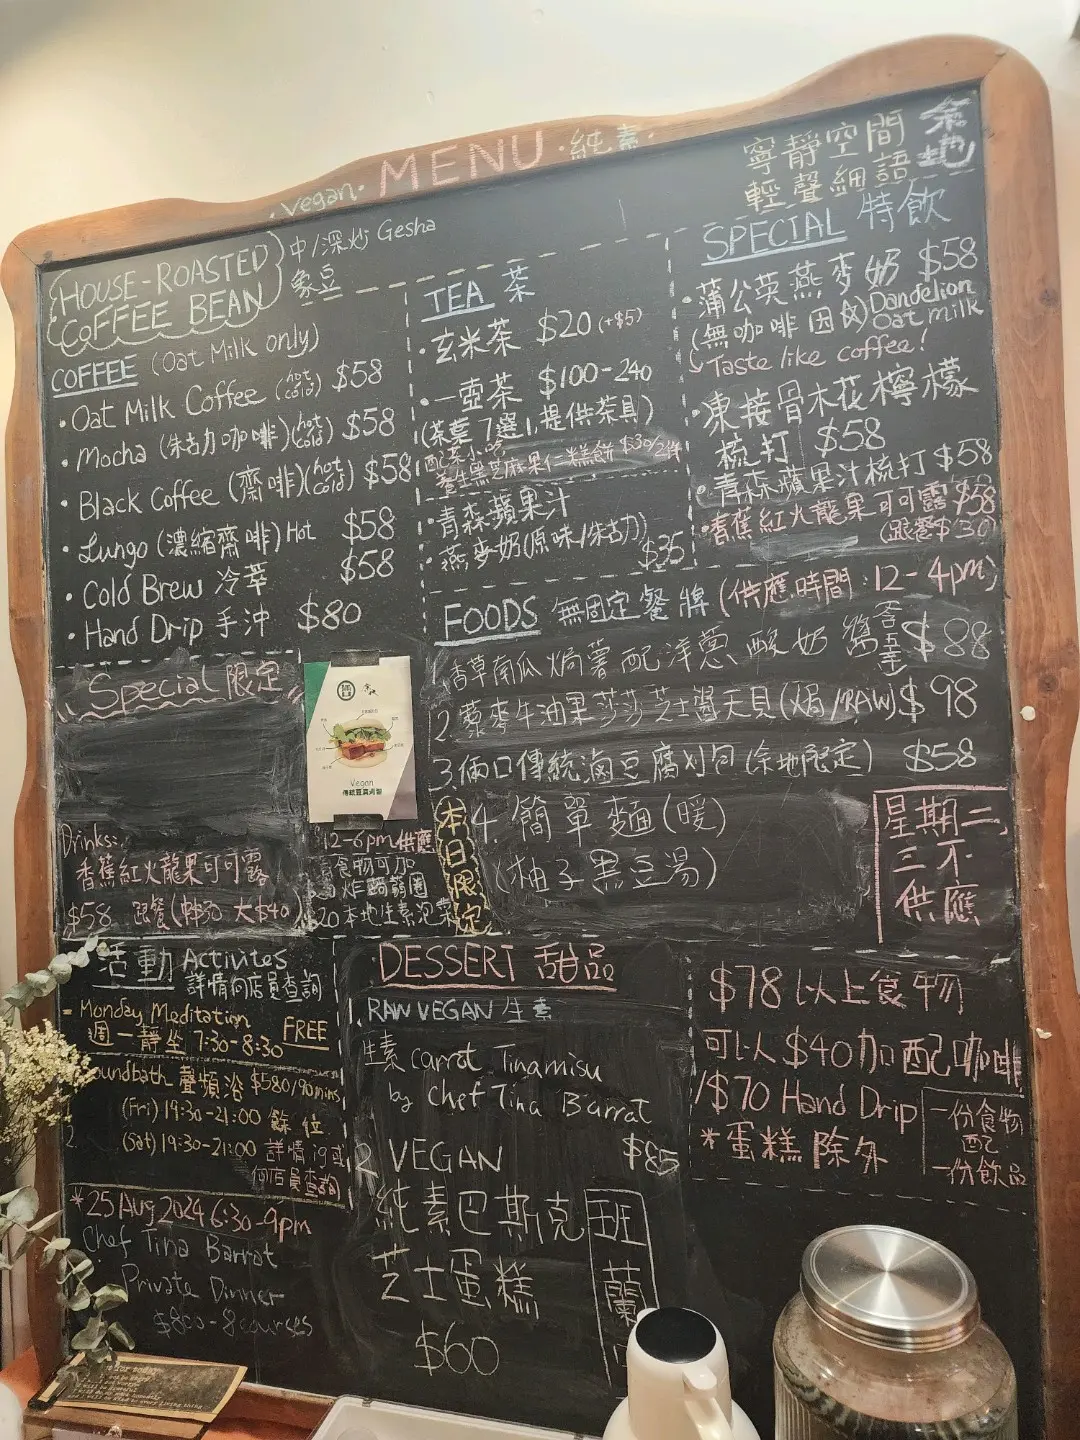 vegan · MENU · 純素 ·
寧靜空間
輕聲細語
余地
HOUSE-ROASTED
COFFEE BEAN
中/深炒 Gesha
象豆
COFFEE (Oat Milk only)
· Oat Milk Coffee (hot cold) $58
· Mocha (朱古力咖啡)(hot cold) $58
· Black Coffee (齋啡)(hot cold) $58
· Lungo (濃縮齋啡) Hot $58
· Cold Brew 冷萃 $58
· Hand Drip 手沖 $80
TEA 茶
· 玄米茶 $20 (+$5)
· 一壺茶 $100-240
(茶葉7選1,提供茶具)
配茶小吃
養生黑芝麻果仁糕餅 $30/2件
· 青森蘋果汁
· 燕麥奶(原味/朱古力) $35
SPECIAL 特飲
· 蒲公英燕麥奶 $58
(無咖啡因) Dandelion
Oat milk
Taste like coffee!
· 東接骨木花檸檬
梳打 $58
· 青森蘋果汁梳打 $58
· 香蕉紅火龍果可可露 $58
(跟餐$30)
FOODS 無固定餐牌 (供應時間 12-4pm)
1. 香草南瓜焗薯配洋蔥酸奶醬 $88
2. 藜麥牛油果莎莎芝士醬天貝(焗/RAW) $98
3. 兩口傳統滷豆腐刈包 (余地限定) $58
本日限定
4. 簡單麵 (暖)
(柚子黑豆湯)
星期二,
三不
供應
Special 限定
Drinks:
香蕉紅火龍果可可露
$58
Vegan
12-6pm供應
食物可加
$20本地生素泡菜
活動 Activites
詳情向店員查詢
- Monday Meditation
週一靜坐 7:30-8:30 FREE
Soundbath 聲頻浴 $580/90mins
(Fri) 19:30-21:00 餘 位
(Sat) 19:30-21:00 詳情
向店員查詢
* 25 Aug 2024 6:30-9pm
Chef Tina Barrat
Private Dinner
$800-8courses
DESSERT 甜品
1. RAW VEGAN 生素
生素 carrot Tinamisu
by Chef Tina Barrat
$85
2 VEGAN
純素巴斯克
芝士蛋糕
班蘭
$60
$78以上食物
可以$40加配咖啡
/$70 Hand Drip
* 蛋糕除外
一份食物
配
一份飲品